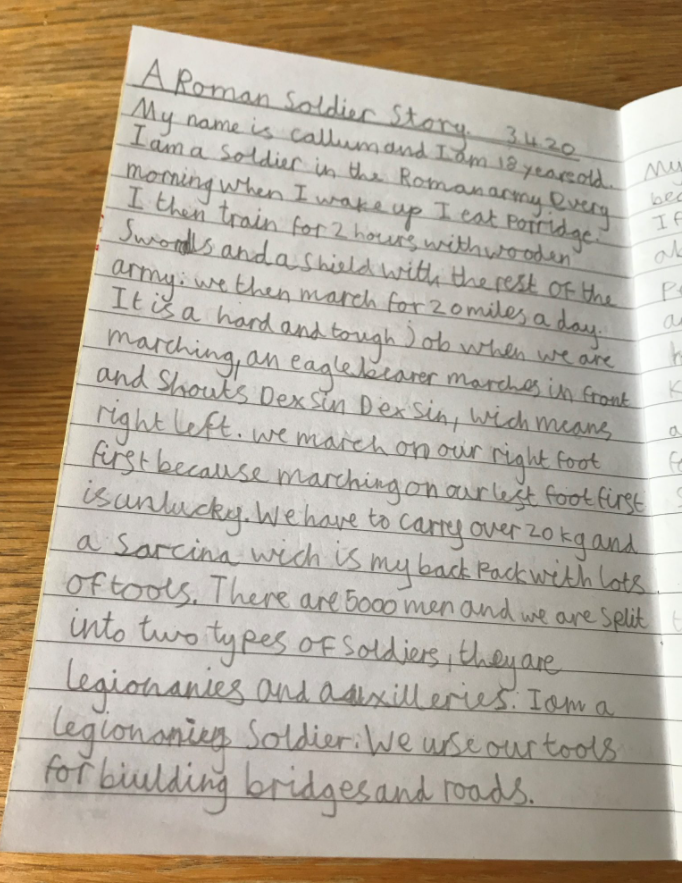 A Roman Soldier Story. 3.4.20
My name is callum and I am 18 years old.
I am a Soldier in the Roman army Every
morning when I wake up I eat Porridge.
I then train for 2 hours with wooden
Swords and a Shield with the rest of the
army. we then march for 20 miles a day.
It is a hard and tough job when we are
marching, an eagle bearer marches in front
and Shouts Dex Sin Dex Sin, wich means
right left. we march on our right foot
first because marching on our left foot first
is unlucky. We have to carry over 20 kg and
a Sarcina wich is my back Pack with lots
of tools. There are 5000 men and we are Split
into two types of Soldiers, they are
legionanies and auxilleries. I am a
legionanieg Soldier. We use our tools
for biulding bridges and roads.
My
bec
I f